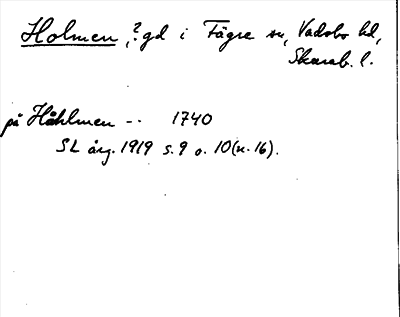 Holmen, ?gd i Fägre sn, Vadsbo hd,
Skarab. l.
på Håhlmen -- 1740
SL årg. 1919 s. 9 o. 10 (n. 16).